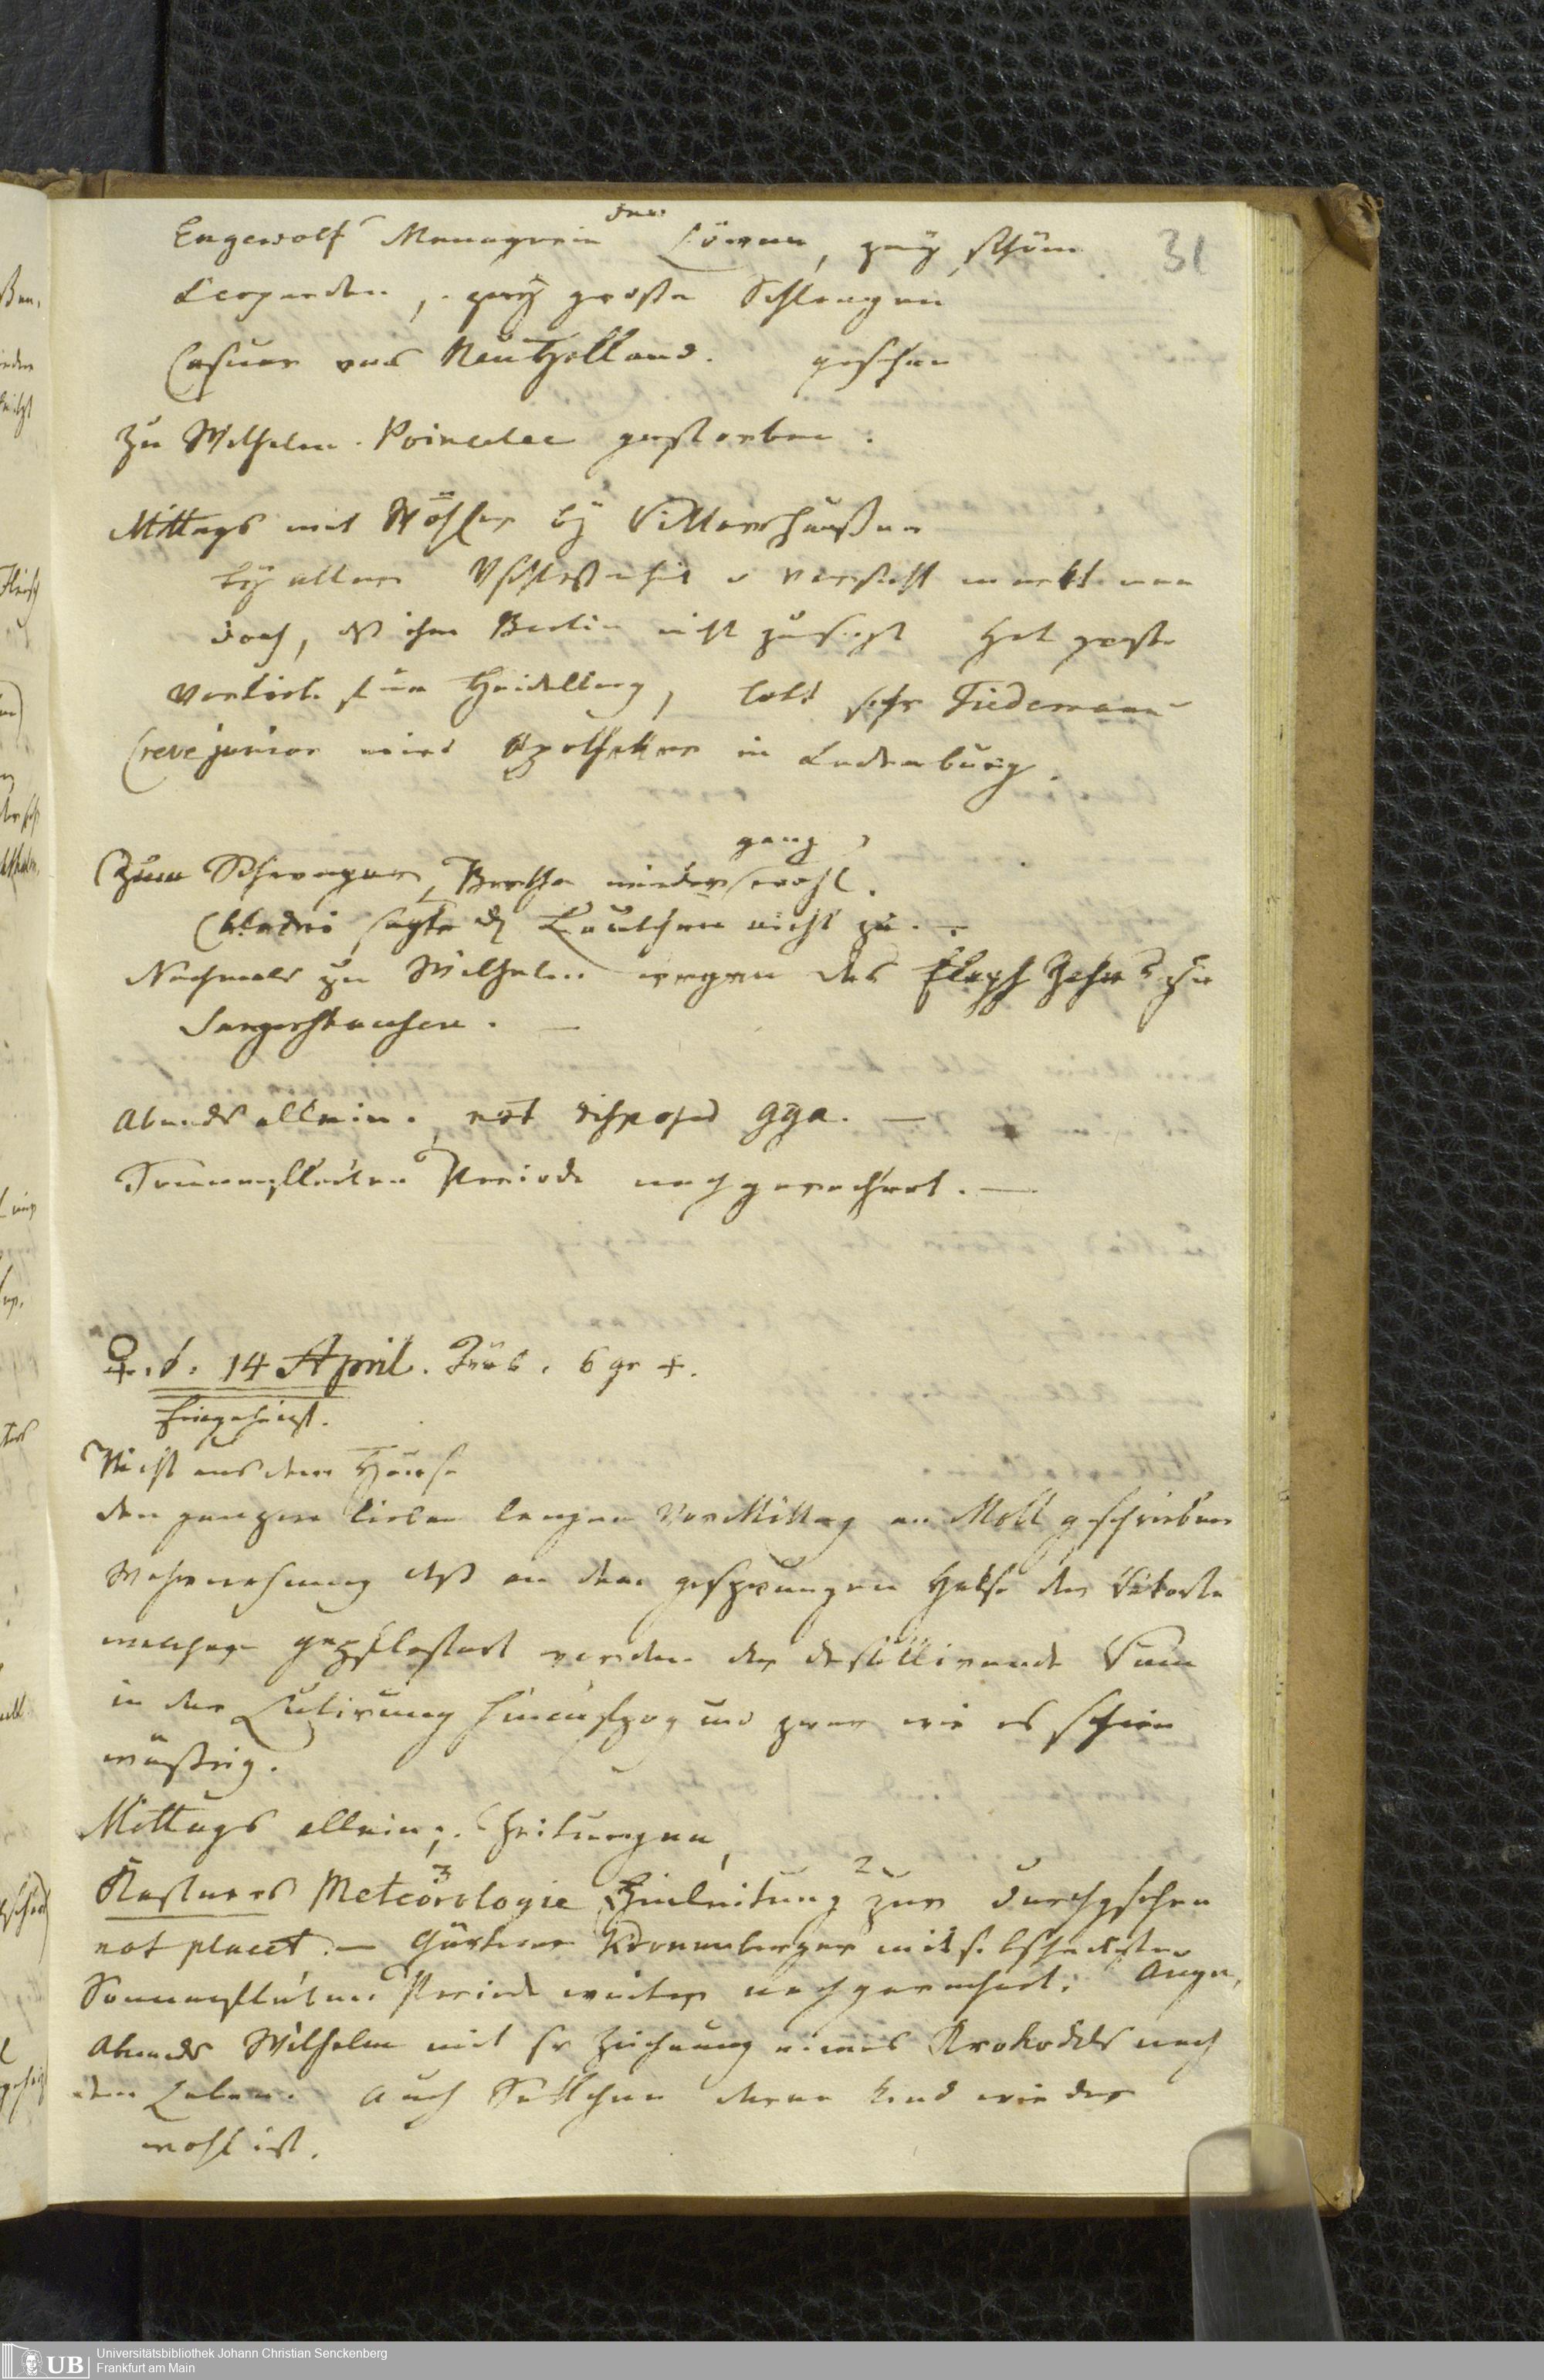 31
Engewolf Menagerie den Löwen, zwÿ schöne
Leoparden, zwÿ große Schlangen
Casuar aus Neu Holland. gesehen
Zu Wilhelm. gestorben.
Mittags mit Wöhler bÿ Vittershaußen
bÿ aller u Vorsicht merkt man
doch, dß ihm Berlin nicht zusagt Hat große
Vorliebe für Heidelberg, lobt sehr Tiedemann
Creve junior wird Apotheker in Ladenburg.
Zum Schwager, Bertha wieder ganz wohl.
Chladni sagte nicht zu. —
Nachmals zu Wilhelm wegen des Eleph Zahns zu
Sangershausen. —
Abends allein. not disposed —
Sonnenflecken Periode nachgerechnet. —
♀. d. 14 April. Trüb. 6 gr +.
Eingeheizt.
Nicht aus dem Hause
den ganzen lieben langen VorMittag an Moll geschrieben
Wahrnehmung dß an dem gesprungen Halse der Retorte
welcher gepflastert worden der destillirende Wein
in der Lutirung hinaufzog und zwar wie es schien
wäßrig.
Mittags allein; Zeitungen,
Kastners Meteorologie 3 Einleitung 2 zur durchgesehen
not placet. — Gärtner Kronenberger mit
Sonnenflecken Periode weiter nachgerechnet. Augen,
Abends Wilhelm mit sr Zeichnung eines Krokodils nach
dem Leben. Auch Settchen deren Kind wieder
wohl ist.
UB Universitätsbibliothek Johann Christian Senckenberg
Frankfurt am Main